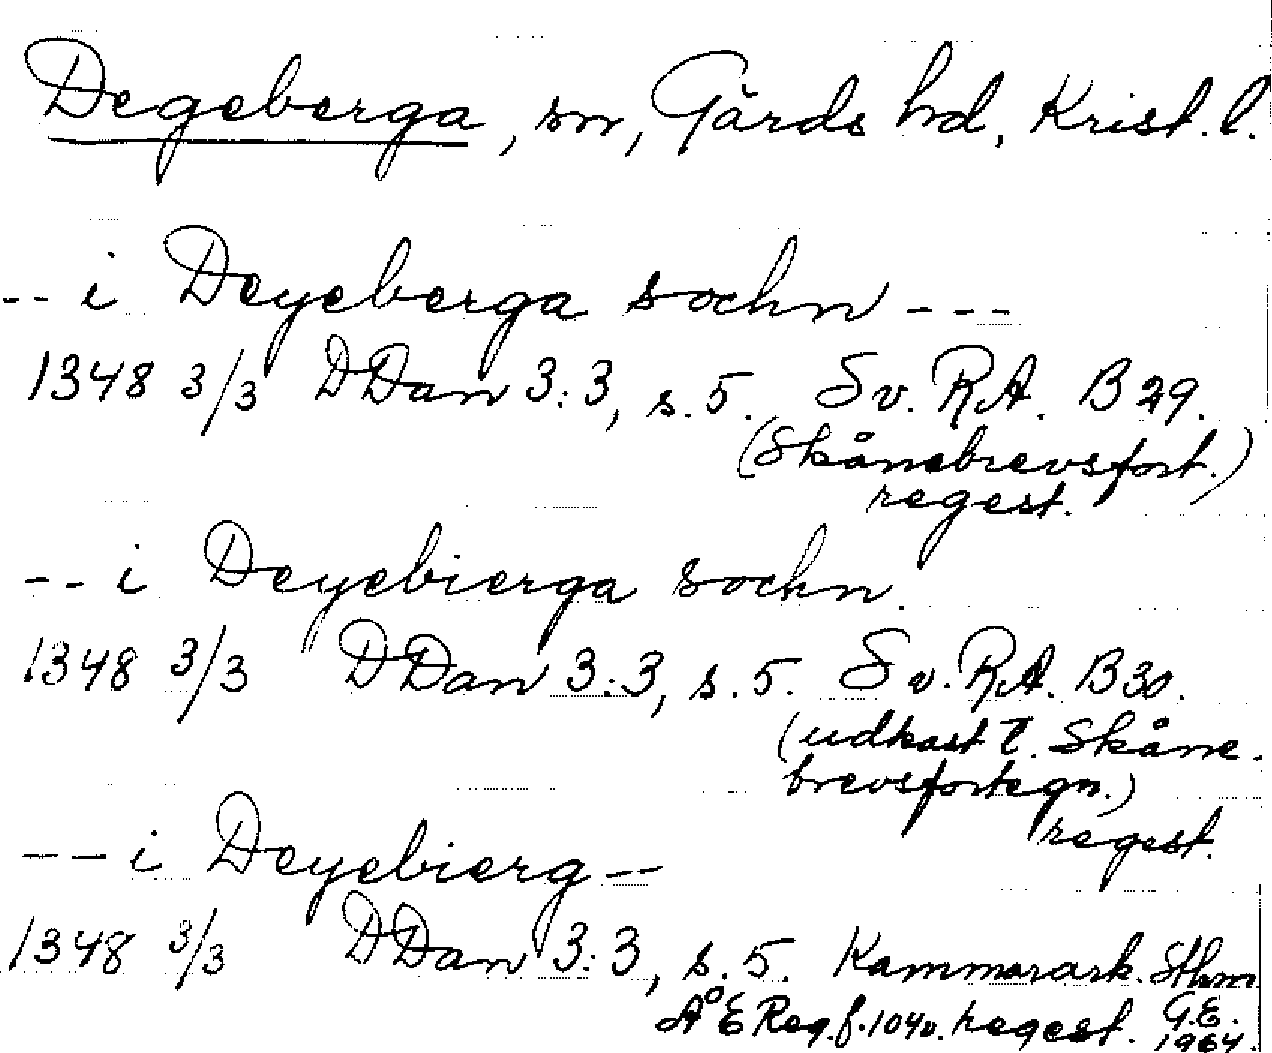 Degeberga, sn, Gärds hd, Krist. l.
-- i Deyeberga sochn ---
1348 3/3 DDan 3:3, s. 5. Sv. R.A. B 29.
(Skånebrevsfort.)
regest.
-- i Deyebierga sochn.
1348 3/3 DDan 3:3, s. 5. Sv. R.A. B 30.
(udkast t. Skåne-
brevsfortegn.)
regest.
-- i Deyebierg --
1348 3/3 DDan 3:3, s. 5. Kammarark. Sthm
ÅE Reg. f. 104v. regest. G.E.
1964.